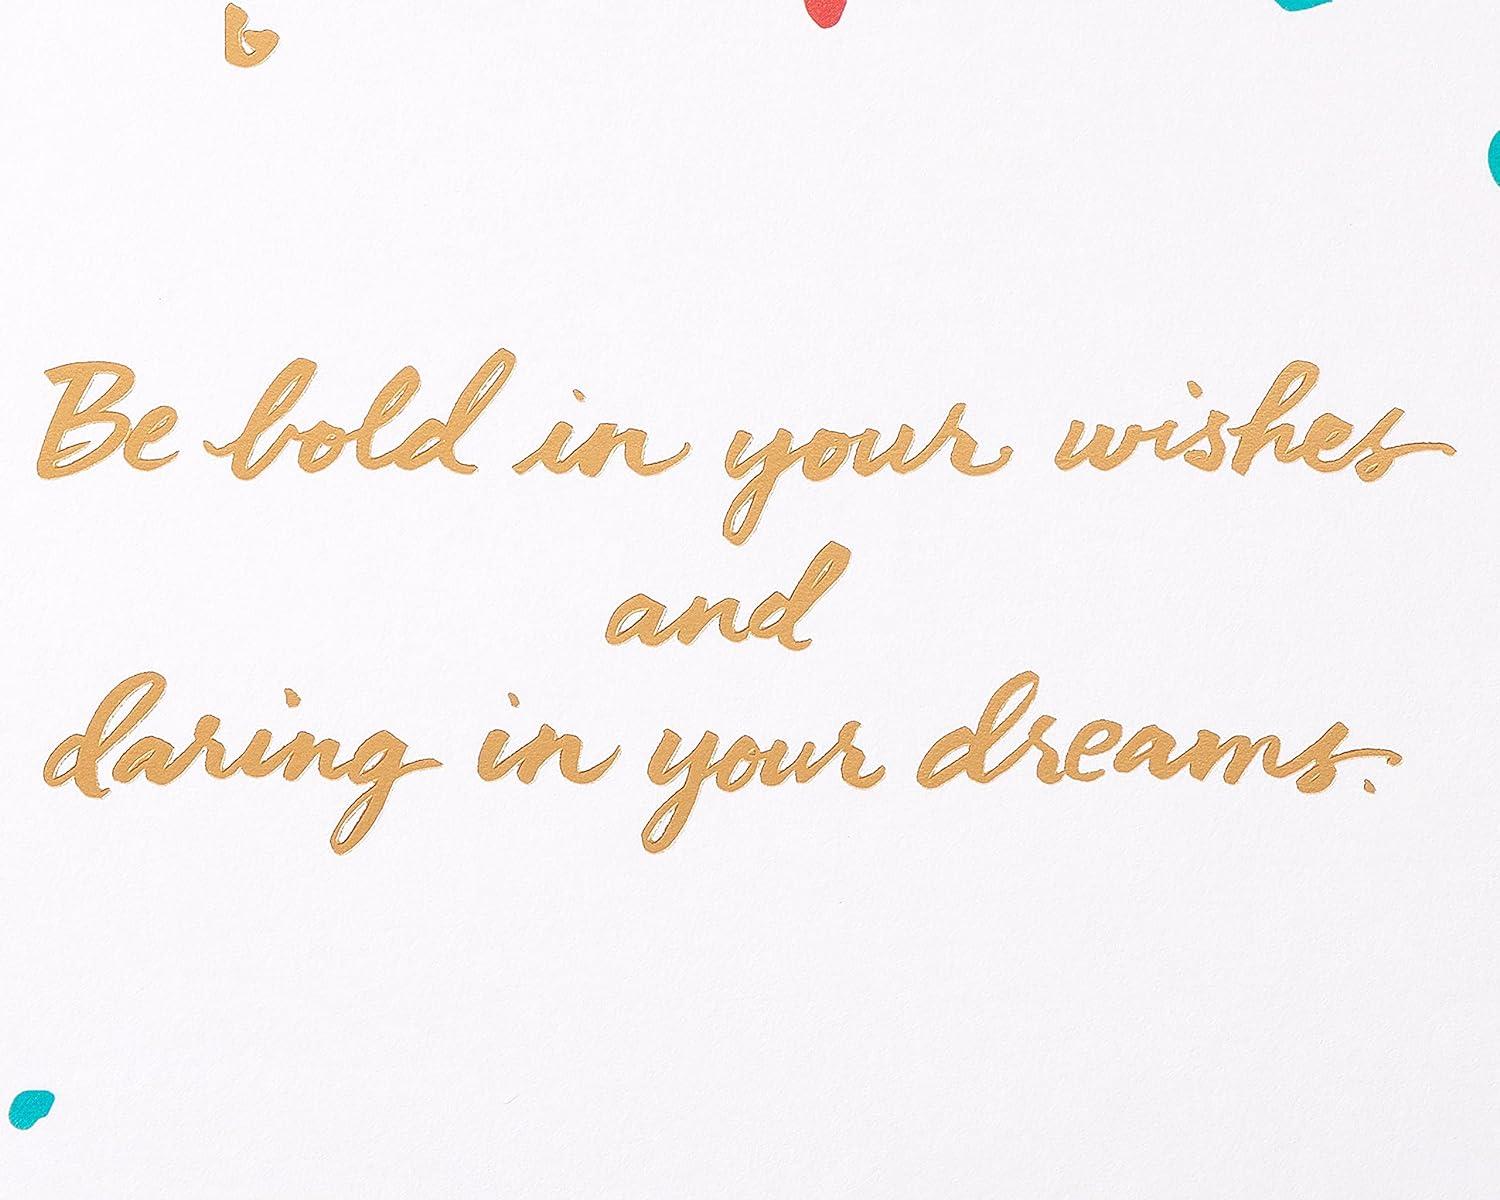 Be bold in your wishes
and
daring in your dreams.